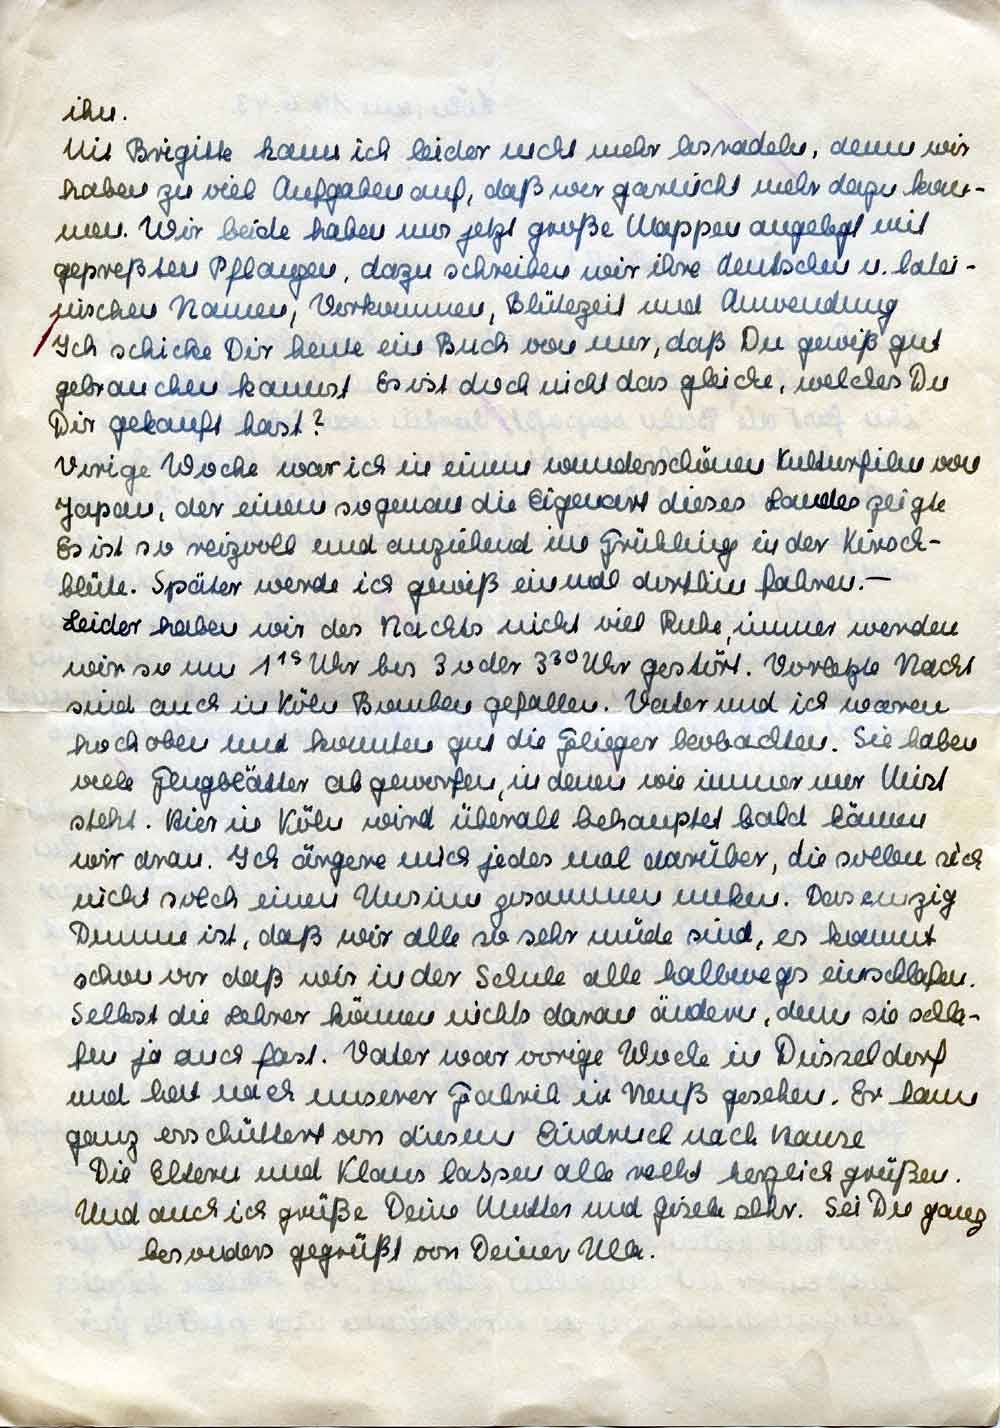 ihn.
Mit Brigitte kann ich leider nicht mehr losradeln, denn wir
haben zu viel Aufgaben auf, daß wir garnicht mehr dazu kom-
men. Wir beide haben uns jetzt große Mappen angelegt mit
gepreßten Pflanzen, dazu schreiben wir ihre deutschen u. latei-
nischen Namen, Vorkommen, Blütezeit und Anwendung
Ich schicke Dir heute ein Buch von mir, daß Du gewiß gut
gebrauchen kannst Es ist doch nicht das gleiche, welches Du
Dir gekauft hast?
Vorige Woche war ich in einem wunderschönen Kulturfilm von
Japan, der einem so genau die Eigenart dieses Landes zeigte
Es ist so reizvoll und anziehend im Frühling in der Kirsch-
blüte. Später werde ich gewiß einmal dorthin fahren.—
Leider haben wir des Nachts nicht viel Ruhe, immer werden
wir so um 1 15 Uhr bis 3 oder 3 30 Uhr gestört. Vorletzte Nacht
sind auch in Köln Bomben gefallen. Vater und ich waren
hoch oben und konnten gut die Flieger beobachten. Sie haben
viele Flugblätter abgeworfen, in denen wie immer nur Mist
steht. Hier in Köln wird überall behauptet bald kämen
wir dran. Ich ärgere mich jedes mal darüber, die sollen sich
nicht solch einen Unsinn zusammen unken. Das einzig
Dumme ist, daß wir alle so sehr müde sind, es kommt
schon vor daß wir in der Schule alle halbwegs einschlafen.
Selbst die Lehrer können nichts daran ändern, denn sie schla-
fen ja auch fast. Vater war vorige Woche in Düsseldorf
und hat nach unserer Fabrik in Neuß gesehen. Er kam
ganz erschüttert von diesem Eindruck nach Hause
Die Eltern und Klaus lassen alle recht herzlich grüßen.
Und auch ich grüße Deine Mutter und Gisela sehr. Sei Du ganz
besonders gegrüßt von Deiner Ulla.